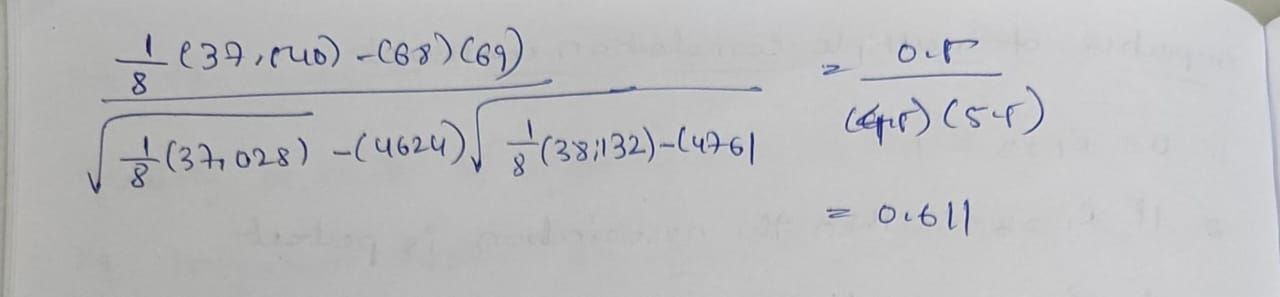 1/8 (37,540) - (68)(69) = 0.5
√1/8 (37,028) - (4624) √1/8 (38,132) - (4761 ( ) (5.5)
= 0.611